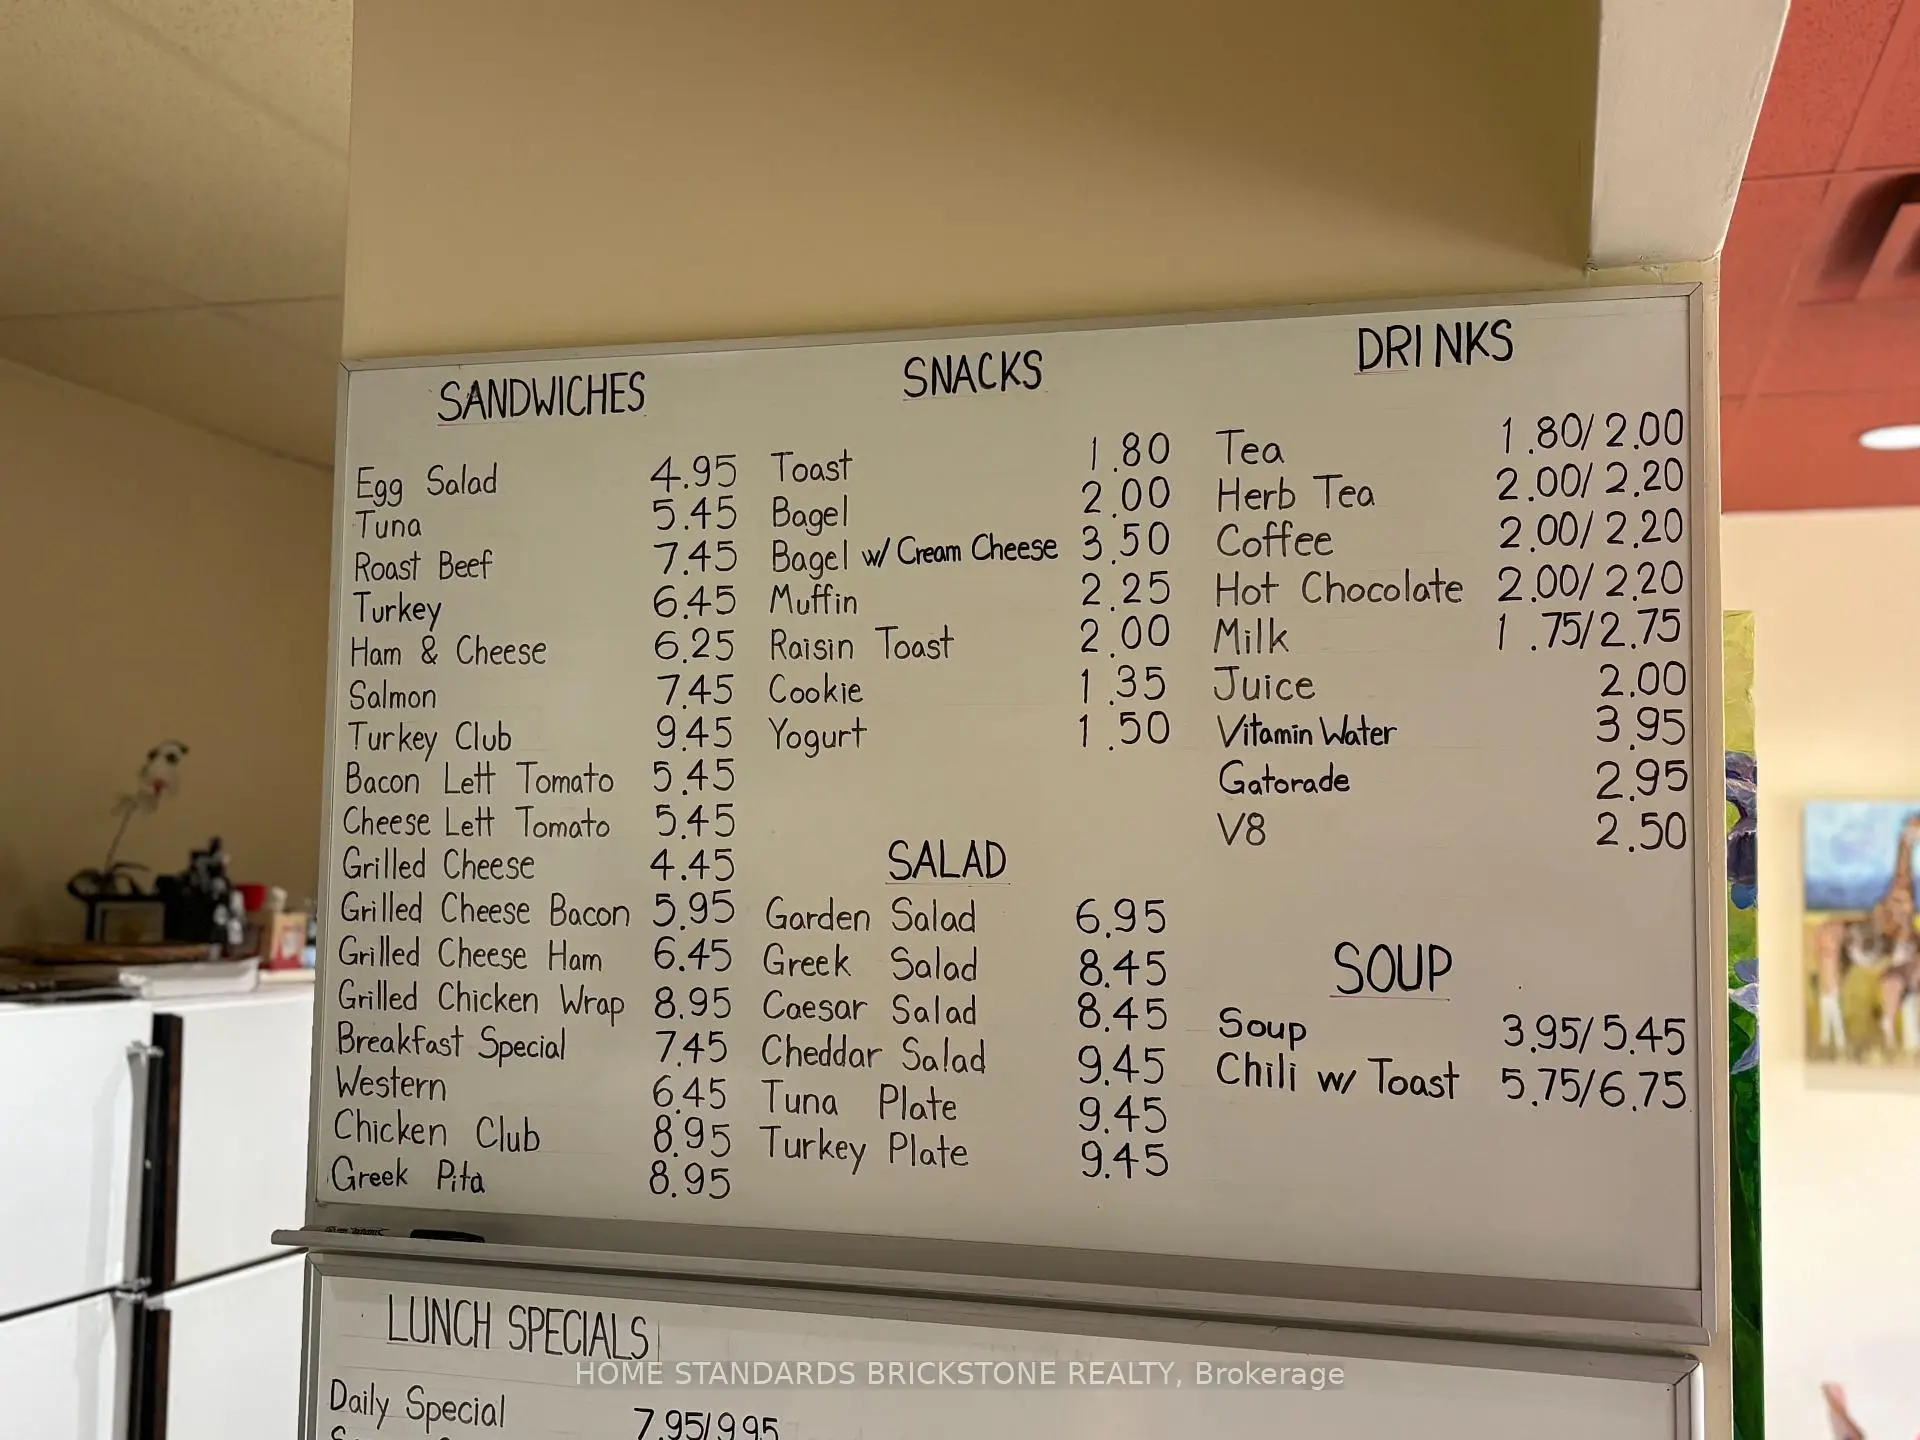 SANDWICHES
Egg Salad 4.95
Tuna 5.45
Roast Beef 7.45
Turkey 6.45
Ham & Cheese 6.25
Salmon 7.45
Turkey Club 9.45
Bacon Lett Tomato 5.45
Cheese Lett Tomato 5.45
Grilled Cheese 4.45
Grilled Cheese Bacon 5.95
Grilled Cheese Ham 6.45
Grilled Chicken Wrap 8.95
Breakfast Special 7.45
Western 6.45
Chicken Club 8.95
Greek Pita 8.95
SNACKS
Toast 1.80
Bagel 2.00
Bagel w/ Cream Cheese 3.50
Muffin 2.25
Raisin Toast 2.00
Cookie 1.35
Yogurt 1.50
SALAD
Garden Salad 6.95
Greek Salad 8.45
Caesar Salad 8.45
Cheddar Salad 9.45
Tuna Plate 9.45
Turkey Plate 9.45
DRINKS
Tea 1.80/2.00
Herb Tea 2.00/2.20
Coffee 2.00/2.20
Hot Chocolate 2.00/2.20
Milk 1.75/2.75
Juice 2.00
Vitamin Water 3.95
Gatorade 2.95
V8 2.50
SOUP
Soup 3.95/5.45
Chili w/ Toast 5.75/6.75
LUNCH SPECIALS
Daily Special 7.95/9.95
HOME STANDARDS BRICKSTONE REALTY, Brokerage